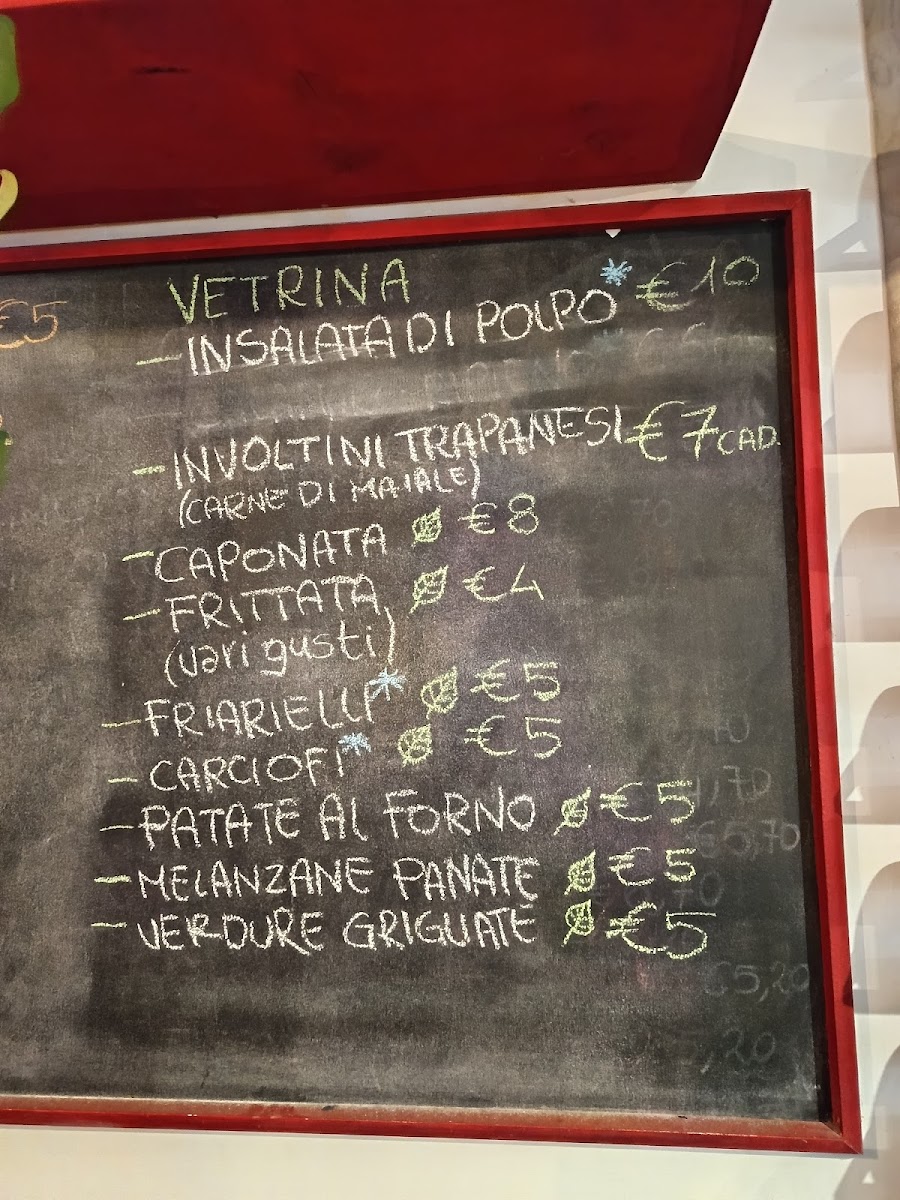 VETRINA
- INSALATA DI POLPO* €10
€5
- INVOLTINI TRAPANESI €7 CAD.
(CARNE DI MAIALE)
- CAPONATA €8
- FRITTATA €4
(vari gusti)
- FRIARIELLI* €5
- CARCIOFI* €5
- PATATE AL FORNO €5
- MELANZANE PANATE €5
- VERDURE GRIGLIATE €5
€5,70
€5,20
5,20